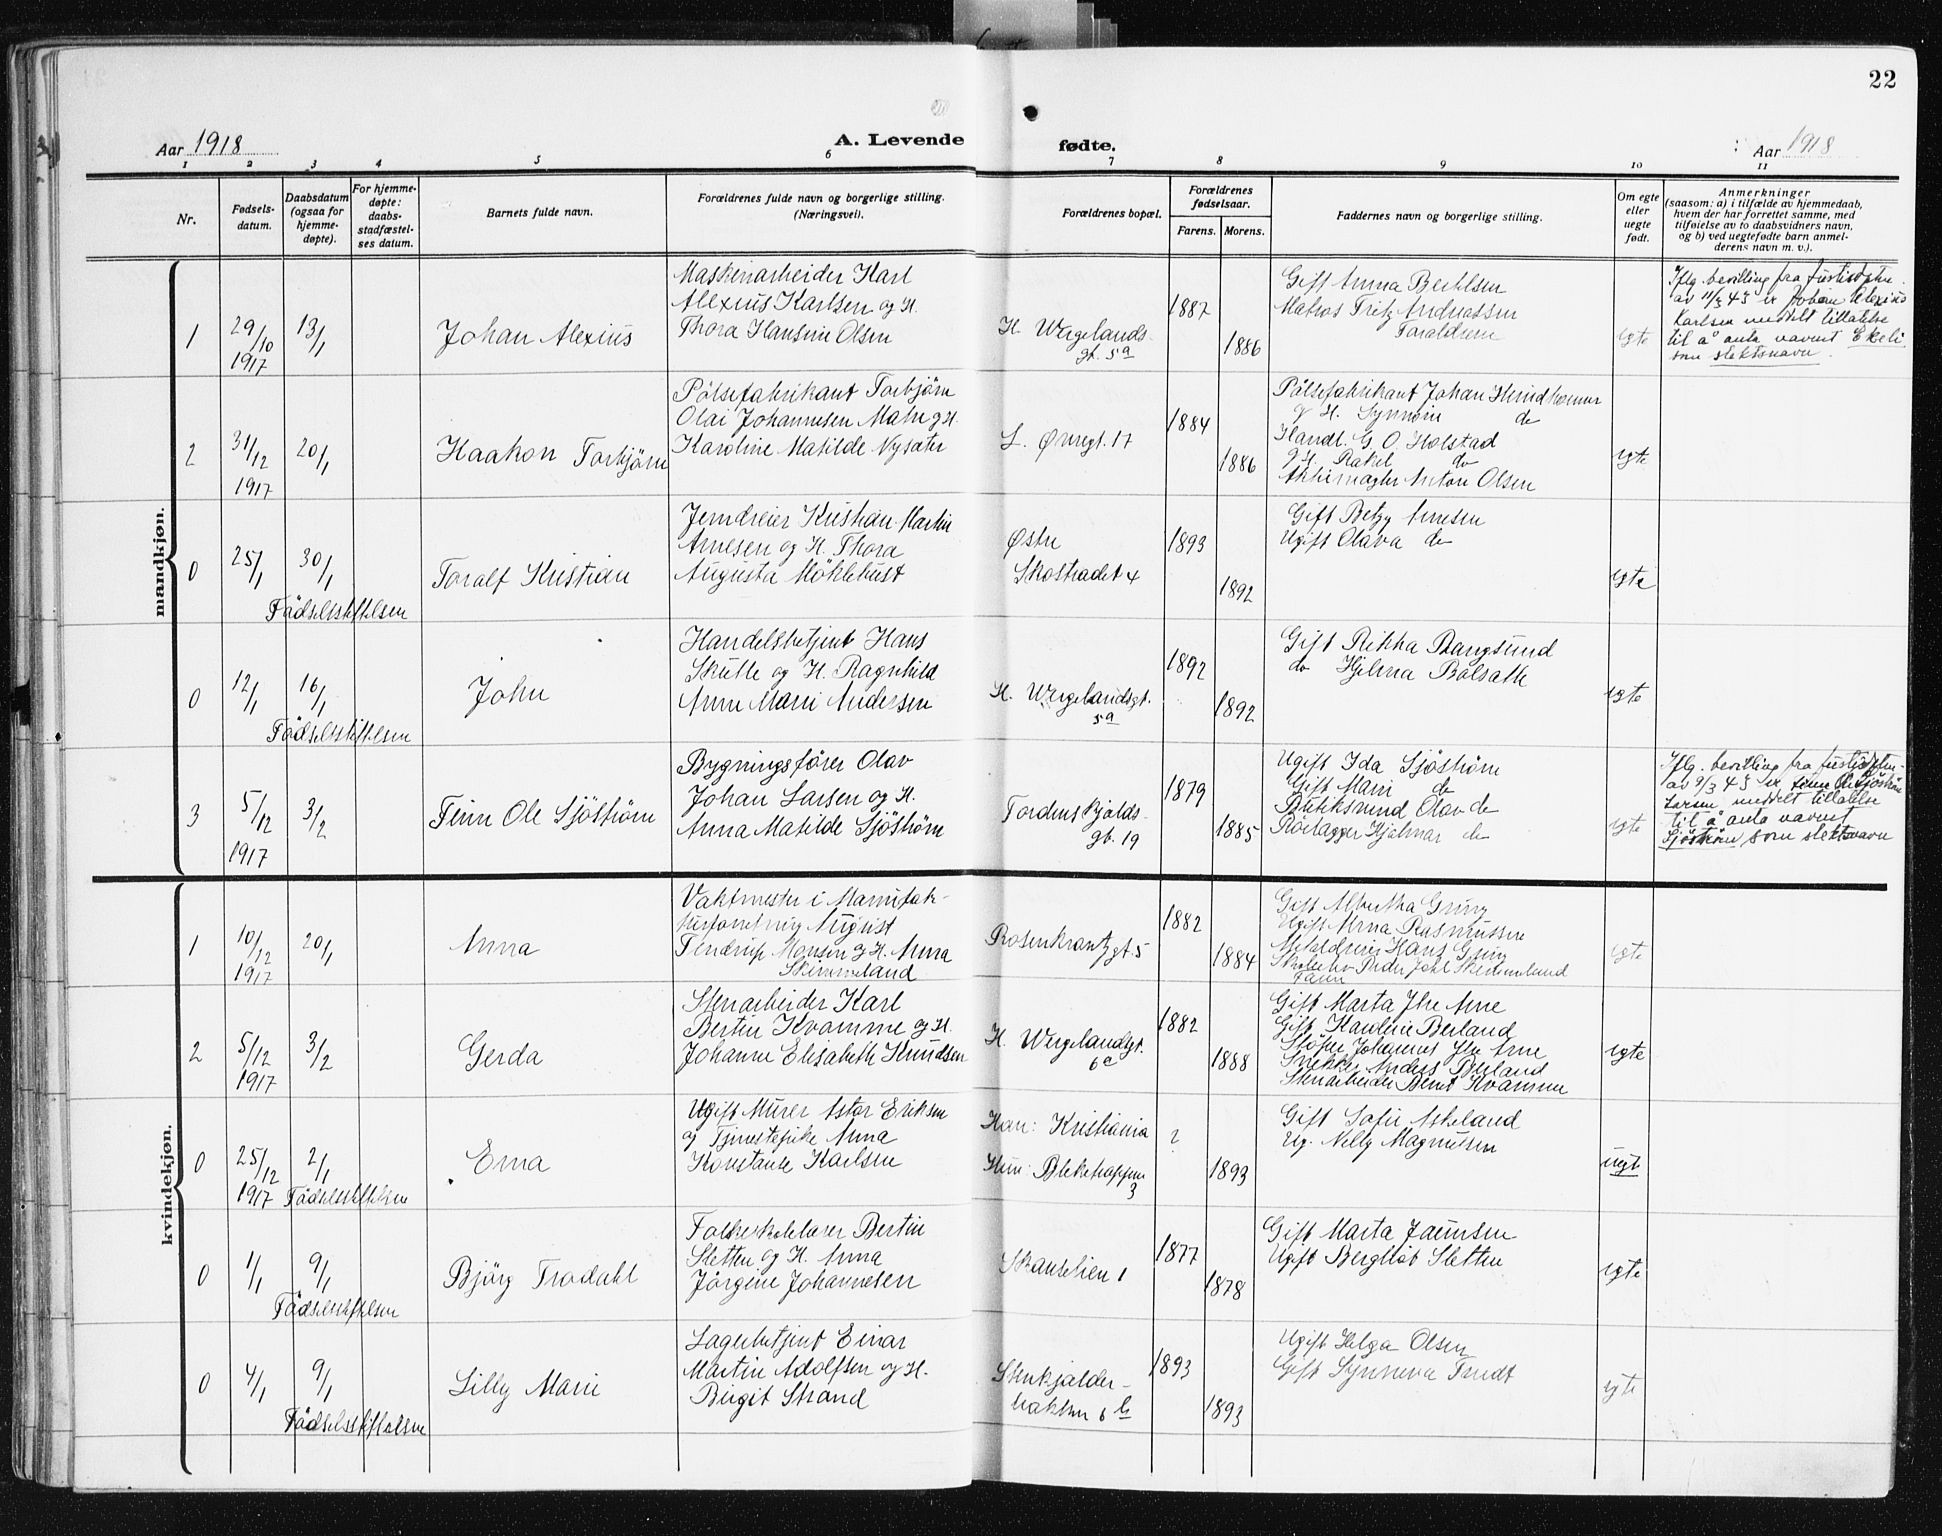 22
Aar 1918
A. Levende fødte.
Aar 1918
1 2 3 4 5 6 7 8 9 10 11
Nr.
Fødsels-
datum.
Daabsdatum
(ogsaa for
hjemme-
døpte).
For hjemme-
døpte:
daabs-
stadfæstel-
ses datum.
Barnets fulde navn.
Forældrenes fulde navn og borgerlige stilling.
(Næringsvei).
Forældrenes bopæl.
Forældrenes
fødselsaar.
Farens. Morens.
Faddernes navn og borgerlige stilling.
Om egte
eller
uegte
født.
Anmerkninger
(saasom: a) i tilfælde av hjemmedaab,
hvem der har forrettet samme, med
tilføielse av to daabsvidners navn,
og b) ved uegtefødte barn anmel-
derens navn m. v.).
mandkjøn.
1
29/10
1917
13/1
Johan Alexius
Maskinarbeider Karl
Alexius Karlsen og H.
Thora Hansine Olsen
H. Wergelands-
gt. 5a
1887
1886
Gift Anna Berthsen
Matros Fritz Andreassen
Forældrene
egte
Iflg. bevilling fra justisdptm.
av 11/3 43 er Johan Alexius
Karlsen meddelt tillatelse
til å anta navnet Ekeli
som slektsnavn.
2
31/12
1917
20/1
Haakon Torbjørn
Pølsefabrikant Torbjørn
Olai Johannesen Mahr og H.
Karoline Matilde Nysæter
L. Øvregt. 17
1884
1886
Pølsefabrikant Johan
og H. Synnøve do
Handl. G. O. Holstad
og H. Rakel do
Anton Olsen
egte
0
25/1
30/1
Fødselsstiftelsen
Toralf Kristian
Jerndreier Kristian Martin
Arnesen og H. Thora
Augusta Møklebust
Østre
Skostrædet 4
1893
1892
Gift Betzy Arnesen
Ugift Olava do
egte
0
12/1
16/1
Fødselsstiftelsen
John
Handelsbetjent Hans
Skutle og H. Ragnhild
Anne Marie Andersen
H. Wergelandsgt.
5a
1892
1892
Gift Rikka Bangsund
do Hjelma Bolsæth
egte
3
5/12
1917
3/2
Finn Ole Sjøstrøm
Bygningsfører Olav
Johan Larsen og H.
Anna Matilde Sjøstrøm
Tordenskjolds-
gt. 19
1879
1885
Ugift Ida Sjøstrøm
Gift Marie do
Olav do
Rørlægger Hjalmar do
egte
Iflg. bevilling fra justisdptm.
av 9/3 43 er Finn Ole Sjøstrøm
Larsen meddelt tillatelse
til å anta navnet
Sjøstrøm som slektsnavn
kvindekjøn.
1
10/12
1917
20/1
Anna
Vaktmester i Manufak-
turforretning August
Tendrup Monsen og H. Anna
Skimmeland
Rosenkrantzgt. 5
1882
1884
Gift Albertha Grung
Ugift Anna Rasmussen
Metaldreier Hans Grung
Peder Johl Skimmeland
Faren
egte
2
5/12
1917
3/2
Gerda
Stenarbeider Karl
Bertin Kvamme og H.
Johanne Elisabeth Knudsen
H. Wergelandsgt.
6c
1882
1888
Gift Marta Arne
Gift Karoline Berland
Johannes Arne
Snekker Anders Berland
Stenarbeider Bernt Kvamme
egte
0
25/12
1917
2/1
Fødselsstiftelsen
Erna
Ugift Murer Astor Eriksen
og Tjenestepike Anna
Konstanse Karlsen
Han: Kristiania
Hun: Blekehoppen
3
?
1893
Gift Sofie Askeland
Ug. Nelly Magnussen
uegt
0
1/1
9/1
Fødselsstiftelsen
Bjørg Trodahl
Folkeskolelærer Bertin
Sletten og H. Anna
Jørgine Johannesen
Skanselien 1
1877
1878
Gift Marta Joensen
Ugift Bergliot Sletten
egte
0
4/1
9/1
Fødselsstiftelsen
Lilly Marie
Lagerbetjent Einar
Martin Adolfsen og H.
Birgit Strand
Stenkjelder-
bakken 6b
1893
1893
Ugift Helga Olsen
Gift Synneva Tredt
egte